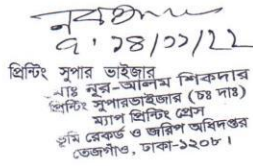 ১৪/১১/২২
প্রিন্টিং সুপার ভাইজার
মোঃ নূর-আলম শিকদার
প্রিন্টিং সুপারভাইজার (চঃ দাঃ)
ম্যাপ প্রিন্টিং প্রেস
ভূমি রেকর্ড ও জরিপ অধিদপ্তর
তেজগাঁও, ঢাকা-১২০৮।